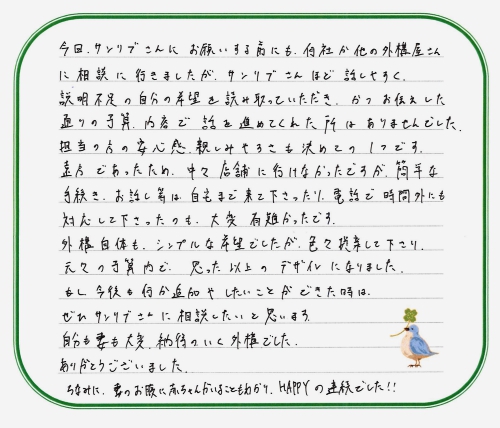 今回、サンリブさんに お願いする前にも、何社か他の外構屋さん
に相談に行きましたが、サンリブさんほど話しやすく、
説明不足の自分の希望を読み取っていただき、かつお伝えした
通りの予算、内容で話を進めてくれた所はありませんでした。
担当の方の安心感、親しみやすさも決めての1つです。
遠方であったため、中々店舗に行けなかったですが、簡単な
手続き、お話し等は自宅まで来て下さったり、電話で時間外にも
対応して下さったのも、大変有難かったです。
外構自体も、シンプルな希望でしたが、色々提案して下さり、
元々の予算内で、思った以上のデザインになりました。
もし今後も何か追加やしたいことができた時は、
ぜひサンリブさんに相談したいと思います。
自分も妻も大変、納得のいく外構でした。
ありがとうございました。
ちなみに、妻のお腹に赤ちゃんがいることもわかり、HAPPYの連続でした!!